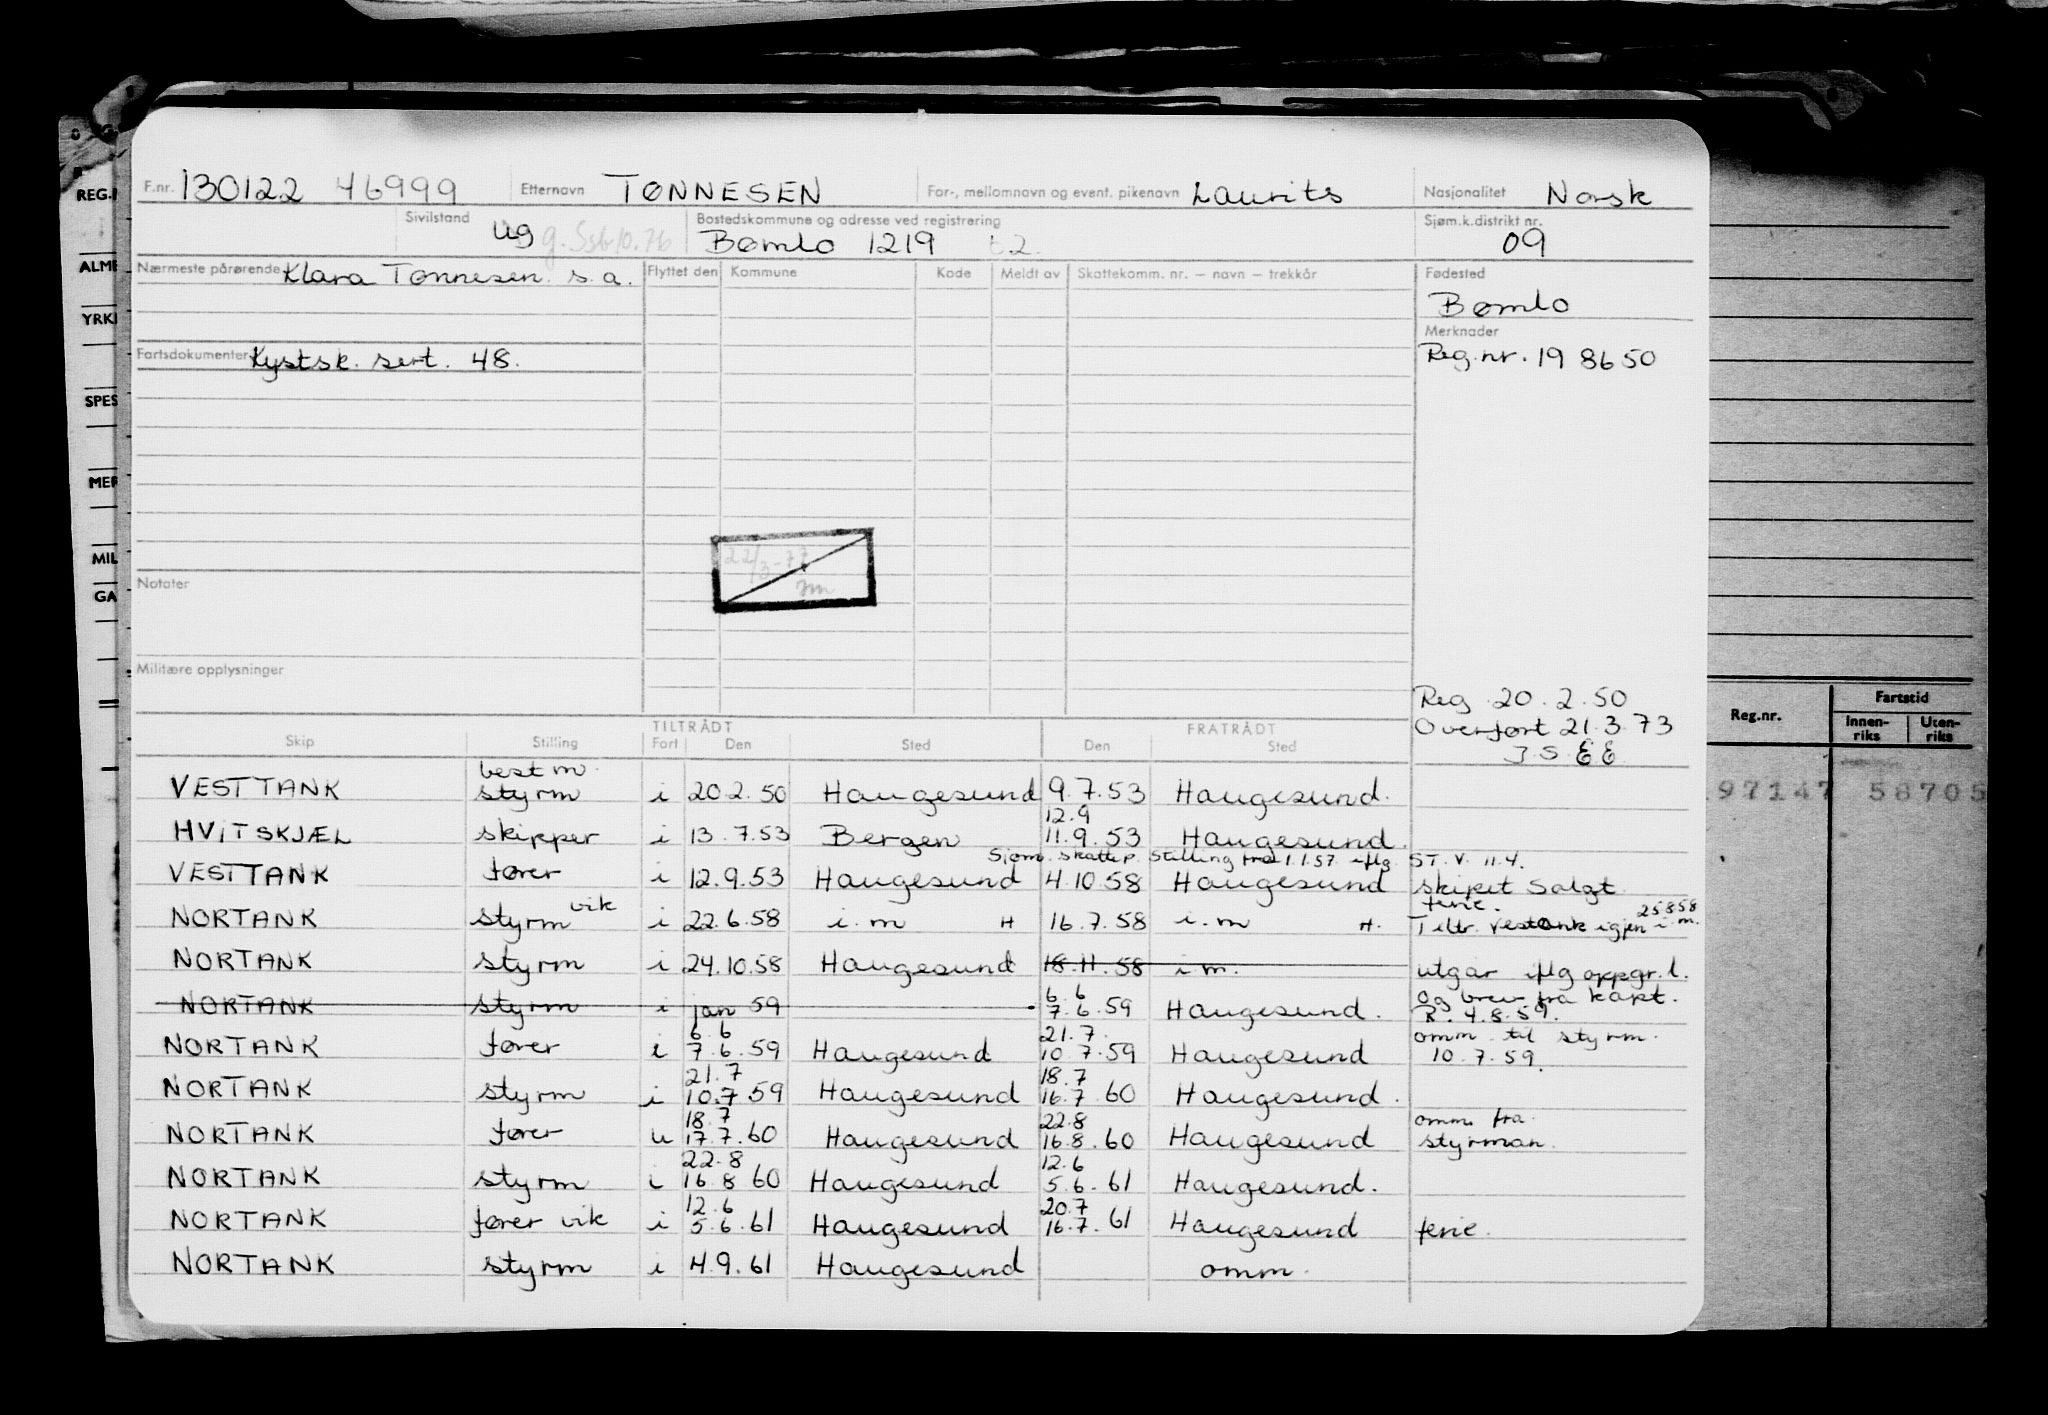 F.nr. 130122 46999 Etternavn TØNNESEN For-, mellomnavn og event. pikenavn Laurits Nasjonalitet Norsk
Sivilstand ug Bostedskommune og adresse ved registrering Bømlo 1219 Sjøm.k.distrikt nr. 09
Nærmeste pårørende Klara Tønnesen s.a. Flyttet den Kommune Kode Meldt av Skattekomm. nr. – navn – trekkår Fødested
Bømlo
Merknader
Fartsdokumenter Kystsk. sert. 48. Reg.nr. 19 8650
22/3-77
Notater
Militære opplysninger
Reg. 20.2.50
Overført 21.3.73
J.S. EE
TILTRÅDT FRATRÅDT
Skip Stilling Fart Den Sted Den Sted
best m.
VESTTANK styrm i 20.2.50 Haugesund 9.7.53 Haugesund.
12.9
HVITSKJÆL skipper i 13.7.53 Bergen 11.9.53 Haugesund.
Sjøm. skattep. stilling fra 1.1.57 iflg. ST.V. 11.4.
VESTTANK fører i 12.9.53 Haugesund 4.10.58 Haugesund skipet solgt
vik ferie. 25858
NORTANK styrm i 22.6.58 i.m H 16.7.58 i.m H. Tiltr. Vestank igjen i.m.
NORTANK styrm i 24.10.58 Haugesund 18.11.58 i.m. utgår iflg oppgr.l.
6.6 og brev fra kapt.
NORTANK styrm i jan 59 7.6.59 Haugesund. R. 4.8.59.
6.6 21.7. omm. til styrm.
NORTANK fører i 7.6.59 Haugesund 10.7.59 Haugesund 10.7.59.
21.7 18.7
NORTANK styrm i 10.7 59 Haugesund 16.7.60 Haugesund.
18.7 22.8 omm. fra.
NORTANK fører u 17.7.60 Haugesund 16.8.60 Haugesund styrman.
22.8 12.6
NORTANK styrm i 16.8 60 Haugesund 5.6.61 Haugesund.
12.6 20.7
NORTANK fører vik i 5.6.61 Haugesund 16.7.61 Haugesund ferie.
NORTANK styrm i 4.9.61 Haugesund omm.
REG.
ALM
YRK
SPES
MER
MIL
GA
Reg.nr. Fartstid
Innen-riks Uten-riks
97147 58705